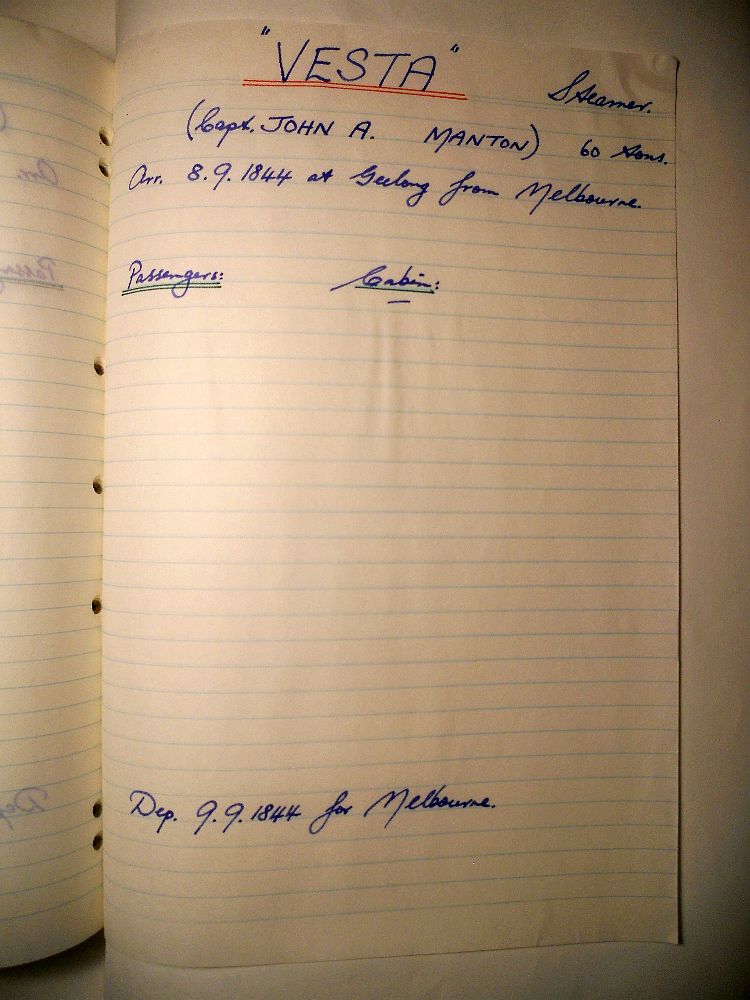 "VESTA"
Steamer.
(Capt. JOHN A. MANTON) 60 tons.
Arr. 8.9.1844 at Geelong from Melbourne.
Passengers: Cabin:
Dep. 9.9.1844 for Melbourne.